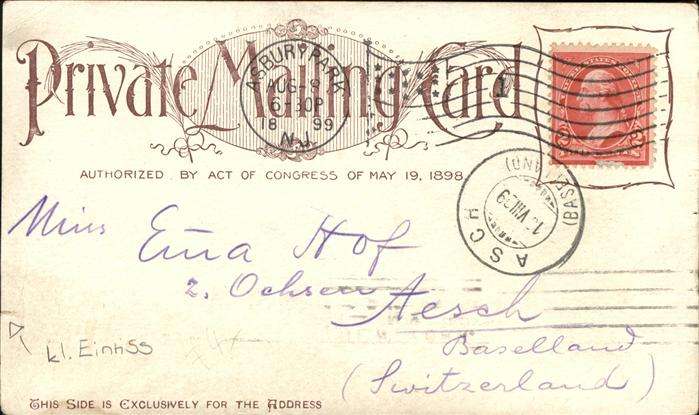 Private Mailing Card
ASBURY PARK
AUG-8
6-30P
18 99
N.J.
1
AUTHORIZED BY ACT OF CONGRESS OF MAY 19, 1898.
(BASELLAND)
VIII 99
AESCH
Miss Ema Hof
2. Ochsen Aesch
Baselland
(Switzerland)
kl. Einriss
THIS SIDE IS EXCLUSIVELY FOR THE ADDRESS